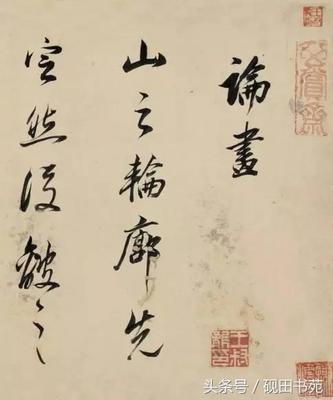 論畫
山之輪廓先
定然後皴之
头条号 / 砚田书苑